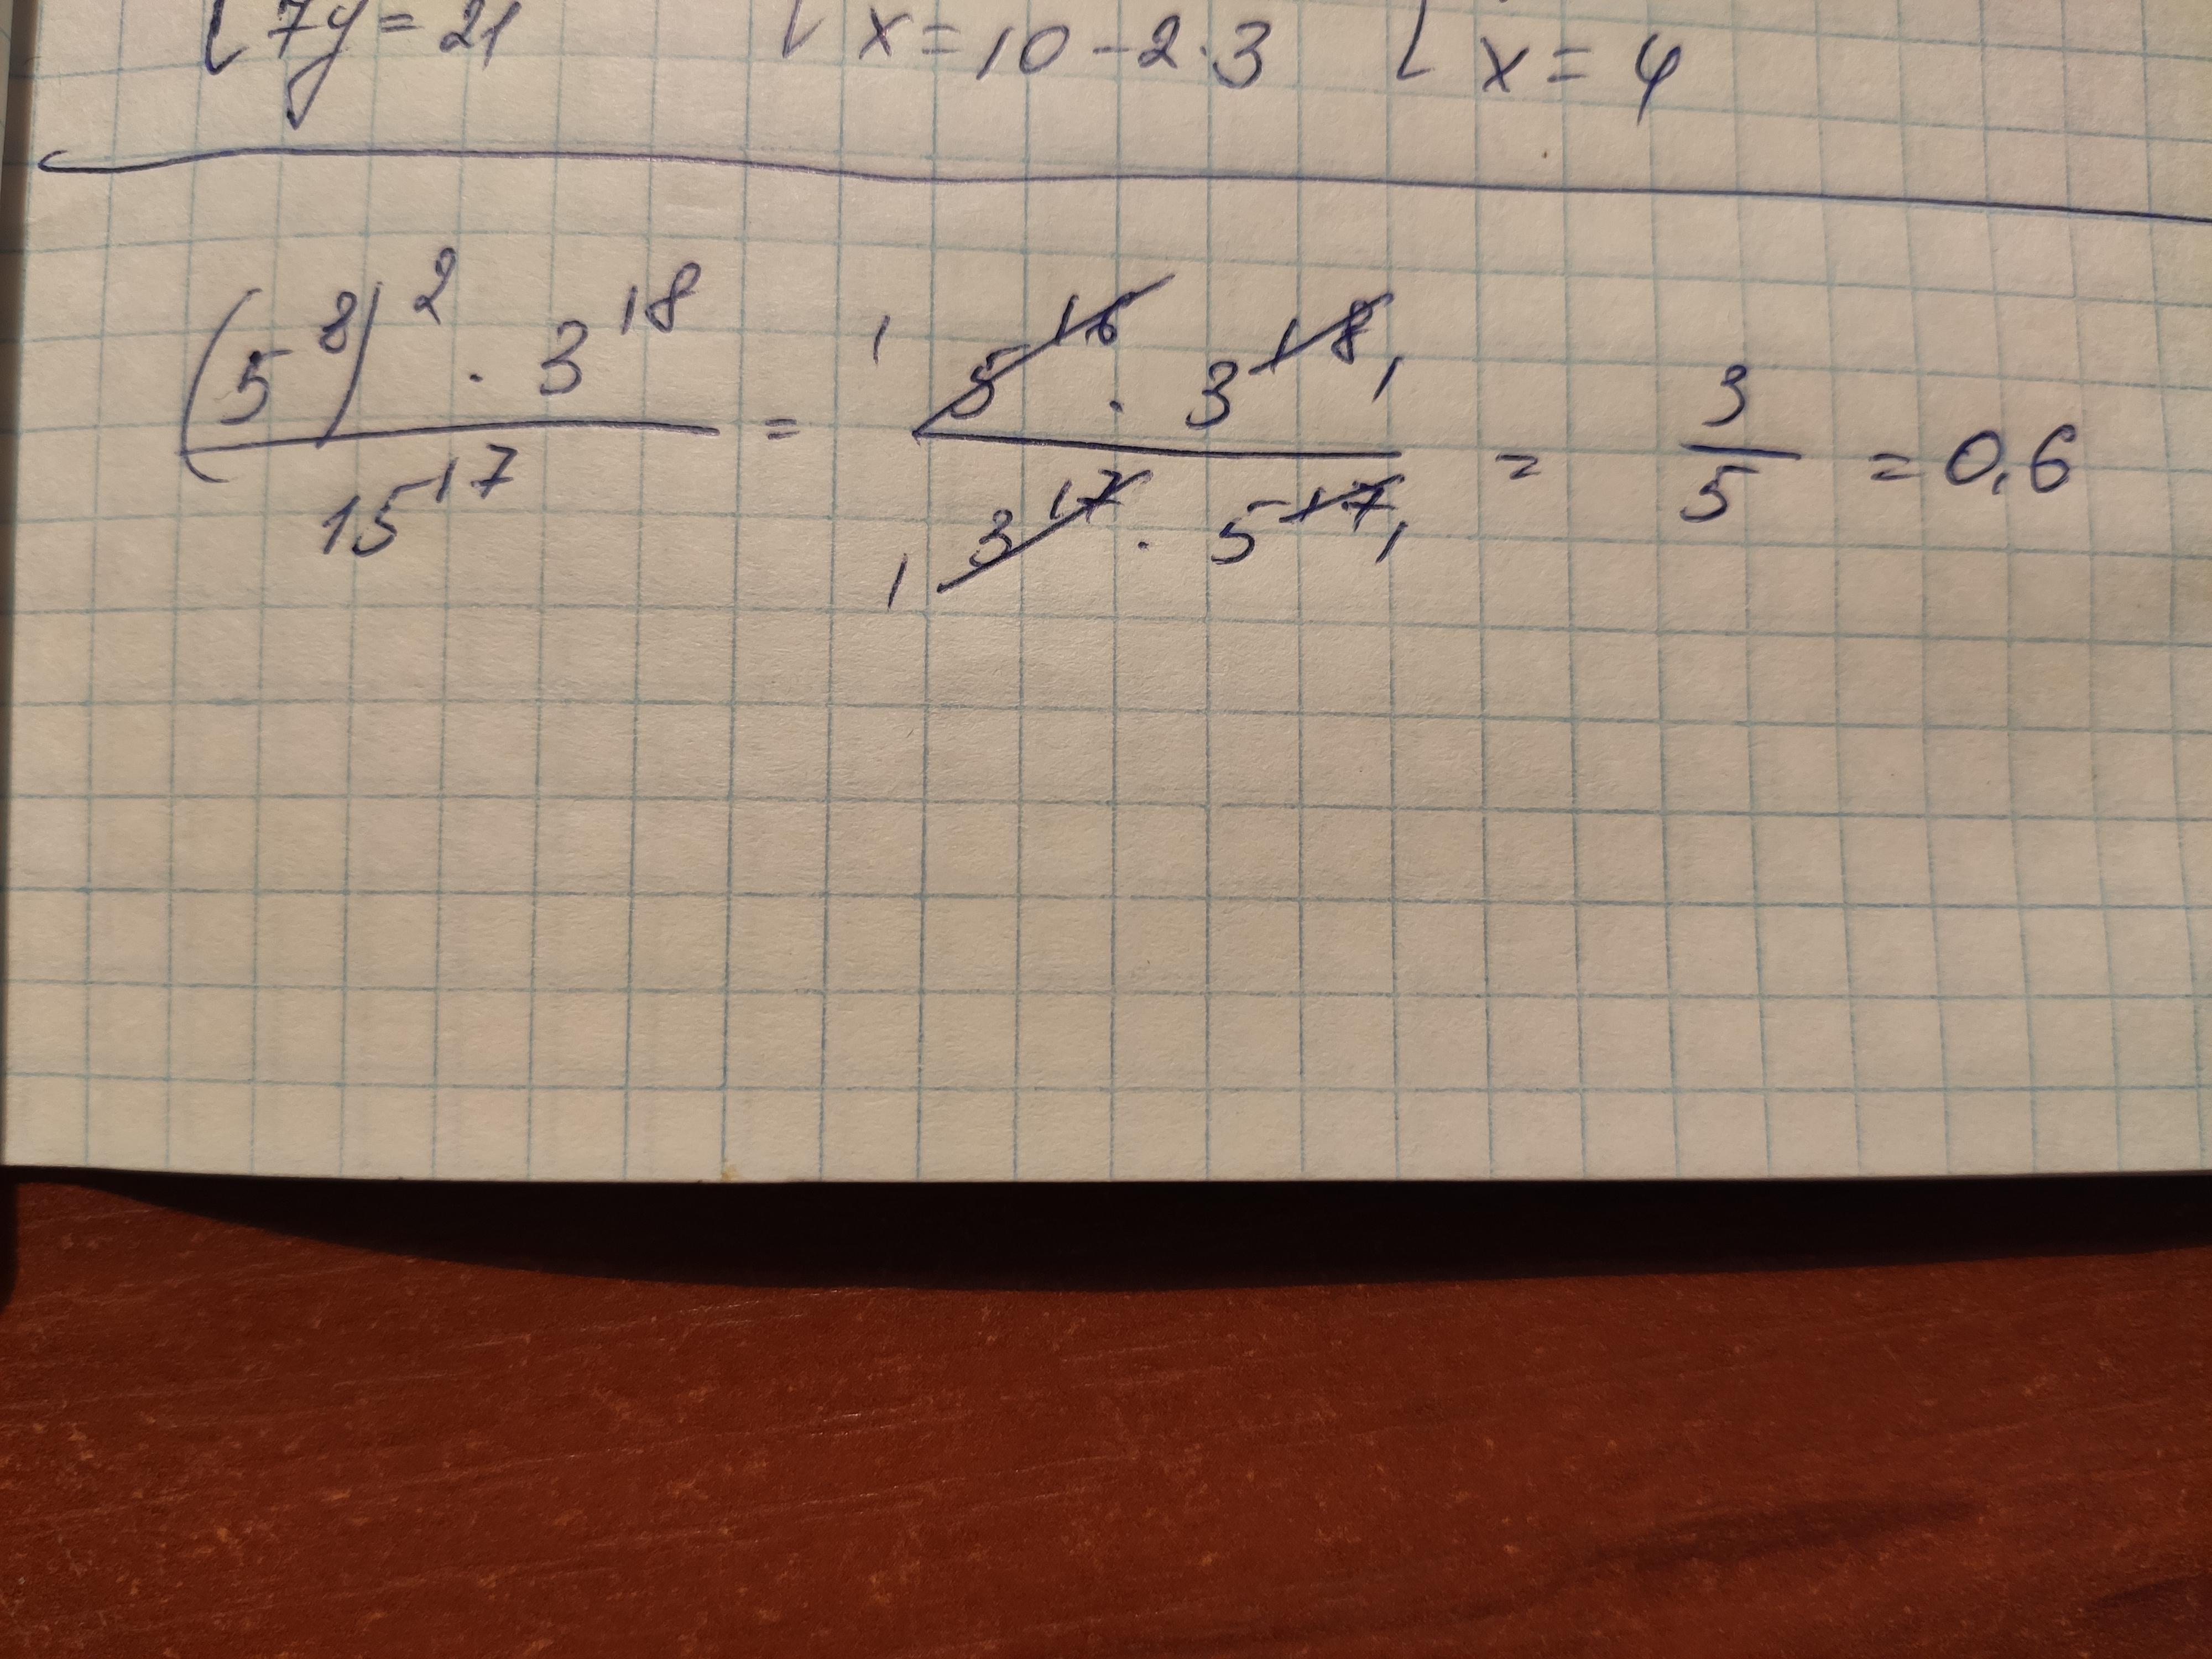 { 7y = 21 { x = 10 - 2 · 3 { x = 4
(5^8)^2 · 3^18 / 15^17 = 1 5^16 · 3^18 1 / 1 3^17 · 5^17 1 = 3/5 = 0,6